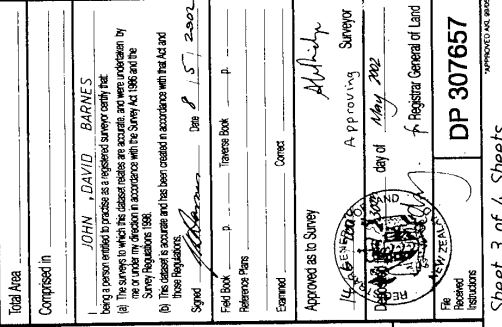 Total Area
Comprised in
I JOHN DAVID BARNES
being a person entitled to practise as a registered surveyor certify that:
(a) The surveys to which this dataset relates are accurate, and were undertaken by
me or under my direction in accordance with the Survey Act 1986 and the
Survey Regulations 1998.
(b) This dataset is accurate and has been created in accordance with that Act and
those Regulations.
Signed Date 8 / 5 / 2002
Field Book p. Traverse Book p.
Reference Plans
Examined Correct
Approved as to Survey
Approving Surveyor
day of May 2002
for Registrar General of Land
File
Received
Instructions
DP 307657
Sheet 3 of 4 Sheets